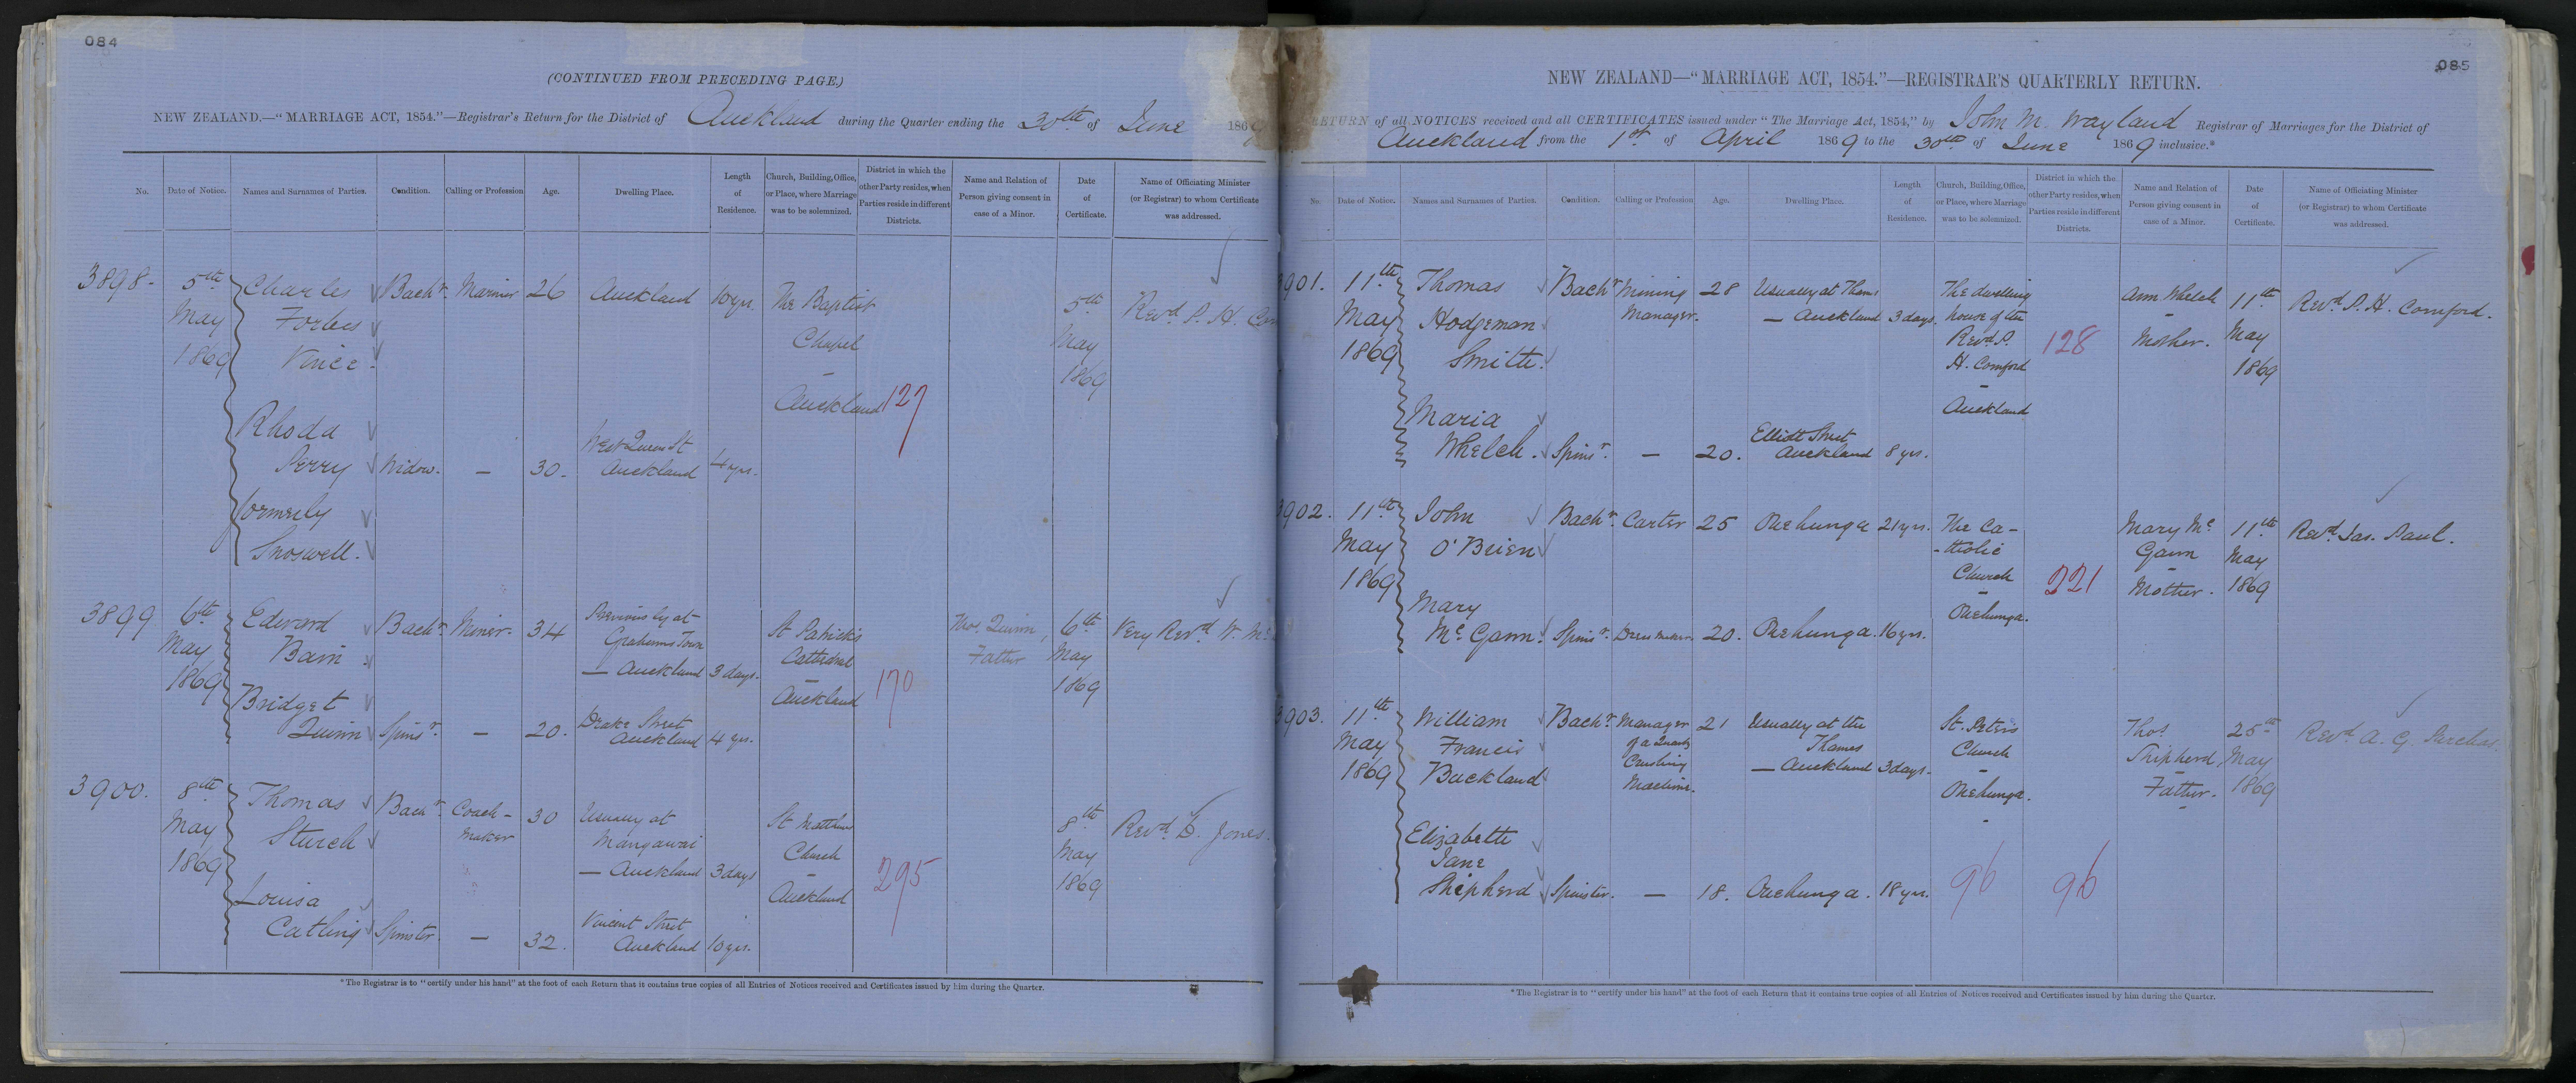 084
(CONTINUED FROM PRECEDING PAGE.)
NEW ZEALAND.—"MARRIAGE ACT, 1854."—Registrar's Return for the District of Auckland during the Quarter ending the 30th of June 186
No. Date of Notice. Names and Surnames of Parties. Condition. Calling or Profession Age. Dwelling Place. Length of Residence. Church, Building, Office, or Place, where Marriage was to be solemnized. District in which the other Party resides, when Parties reside in different Districts. Name and Relation of Person giving consent in case of a Minor. Date of Certificate. Name of Officiating Minister (or Registrar) to whom Certificate was addressed.
3898- 5th May 1869 Charles Forbes Vince. Bachr. Mariner 26 Auckland 10 yrs. The Baptist Chapel – Auckland 127 5th May 1869 Revd. P. H.
Rhoda Perry formerly Snoswell. Widow. – 30. West Queen St Auckland 4 yrs.
3899 6th May 1869 Edward Bain Bachr. Miner. 34 Previously at Grahams Town — Auckland 3 days. St Patrick's Cathedral – Auckland 170 Thos. Quinn, Father 6th May 1869 Very Revd. W.
Bridget Quinn Spinsr. – 20. Drake Street Auckland 4 yrs.
3900. 8th May 1869 Thomas Sturch Bachr. Coach-maker 30 Usually at Mangawai — Auckland 3 days St Matthews Church – Auckland 295 8th May 1869 Revd. Jones.
Louisa Catling Spinster. – 32. Vincent Street Auckland 10 yrs.
*The Registrar is to "certify under his hand" at the foot of each Return that it contains true copies of all Entries of Notices received and Certificates issued by him during the Quarter.
085
NEW ZEALAND—"MARRIAGE ACT, 1854."—REGISTRAR'S QUARTERLY RETURN.
RETURN of all NOTICES received and all CERTIFICATES issued under "The Marriage Act, 1854," by John M. Wayland Registrar of Marriages for the District of
Auckland from the 1st of April 1869 to the 30th of June 1869 inclusive.*
No. Date of Notice. Names and Surnames of Parties. Condition. Calling or Profession Age. Dwelling Place. Length of Residence. Church, Building, Office, or Place, where Marriage was to be solemnized. District in which the other Party resides, when Parties reside in different Districts. Name and Relation of Person giving consent in case of a Minor. Date of Certificate. Name of Officiating Minister (or Registrar) to whom Certificate was addressed.
3901. 11th May 1869 Thomas Hodgeman Smith. Bachr. Mining Manager. 28 Usually at Thames — Auckland 3 days. The dwelling house of the Revd. P. H. Cornford – Auckland 128 Ann Whelch – Mother. 11th May 1869 Revd. P. H. Cornford.
Maria Whelch. Spinsr. – 20. Elliott Street Auckland 8 yrs.
3902. 11th May 1869 John O'Brien Bachr. Carter 25 Onehunga 21 yrs. The Ca- -tholic Church – Onehunga. 221 Mary Mc Gann – Mother. 11th May 1869 Revd. Jas. Paul.
Mary Mc Gann. Spinsr. Dress maker. 20. Onehunga. 16 yrs.
3903. 11th May 1869 William Francis Buckland Bachr. Manager of a Quartz Crushing Machine. 21 Usually at the Thames — Auckland 3 days. St. Peters Church – Onehunga. Thos. Shipherd, Father. 25th May 1869 Revd. A. G. Purchas.
Elizabeth Jane Shipherd Spinster. – 18. Onehunga. 18 yrs. 96 96
*The Registrar is to "certify under his hand" at the foot of each Return that it contains true copies of all Entries of Notices received and Certificates issued by him during the Quarter.